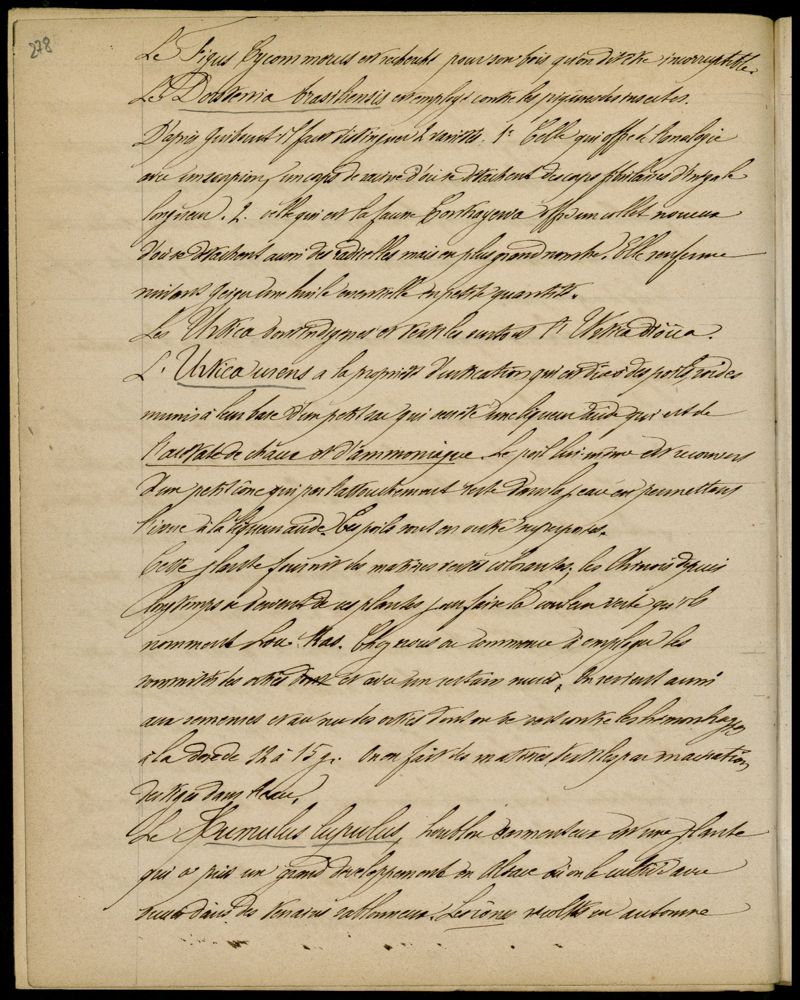 278
Le Ficus Sycommorus est recherché pour son bois qu'on dit être incorruptible.
Le Dorstenia brasiliensis est employé contre les piqures des insectes.
D'après Guibourt il faut distinguer 2 variétés. 1° Celle qui offre de l'analogie
avec un scorpion, un corps de racine d'où se détachent des corps d'inégale
longueur. 2. celle qui est la fausse offre un collet noueux
d'où se détachent aussi des radicelles mais en plus grand nombre. Elle renferme
suivant Geiger une huile essentielle en petite quantité.
Les Urtica sont indigènes et surtout l'Urtica dioïca.
L'Urtica urens a la propriété d'urtication qui est due à des poils roides
munis à leur base d'un petit sac qui sécrète une liqueur acide qui est de
de chaux et d'ammoniaque. Le poil lui-même est recouvert
d'un petit cône qui par l'attouchement reste dans la peau en permettant
l'issue à la liqueur acide. Ces poils sont en outre
Cette plante fournit des matières vertes colorantes, les Chinois depuis
longtemps se servent de ces plantes pour faire la couleur verte qu'ils
nomment Lou-Kao. Chez nous on commence à employer les
sommités des orties et avec un certain succès. On revient aussi
aux semences et au suc des orties dont on se sert contre les hémorrhagies
à la dose de 12 à 15 g. On en fait des matières textiles par macération
des tiges dans l'eau.
Le Humulus lupulus, houblon sarmenteux est une plante
qui a pris un grand développement en Alsace où on le cultive avec
succès dans des terrains sablonneux. Les cônes récoltés en automne